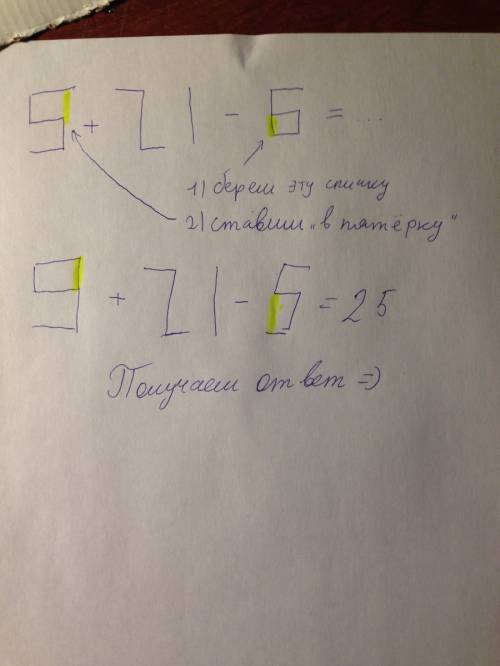 5 + 21 - 6 = ...
1) берем эту спичку
2) ставим „в пятёрку“
9 + 21 - 5 = 25
Получаем ответ =)